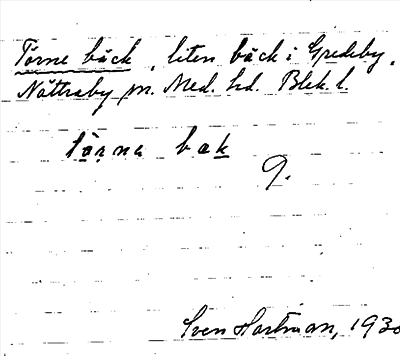 Törne bäck, liten bäck i Gredeby,
Nättraby sn. Med. hd. Blek. l.
törna bæk
9.
Sven Hartman, 1930